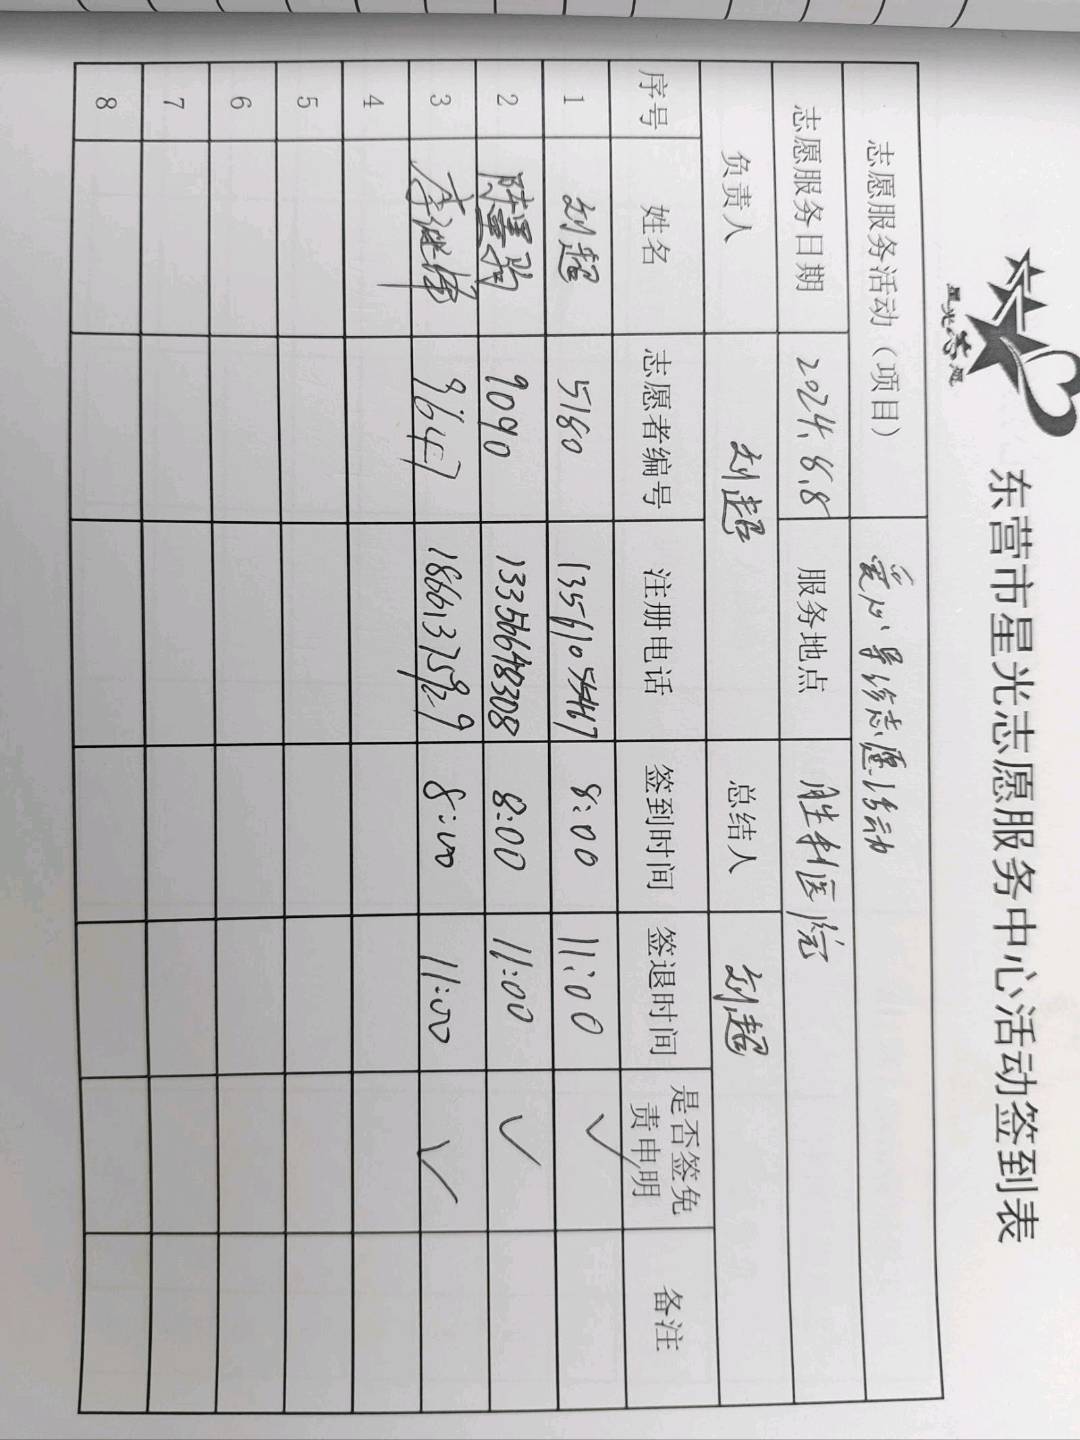 星光荟愿
东营市星光志愿服务中心活动签到表
志愿服务活动（项目） 爱心导诊志愿活动
志愿服务日期 2024.8.8 服务地点 胜利医院
负责人 刘超 总结人 刘超
序号 姓名 志愿者编号 注册电话 签到时间 签退时间 是否签免责申明 备注
1 刘超 5180 13561055467 8:00 11:00 ✓
2 陈 9090 13356648308 8:00 11:00 ✓
3 李继梅 9647 18661375929 8:00 11:00 ✓
4
5
6
7
8